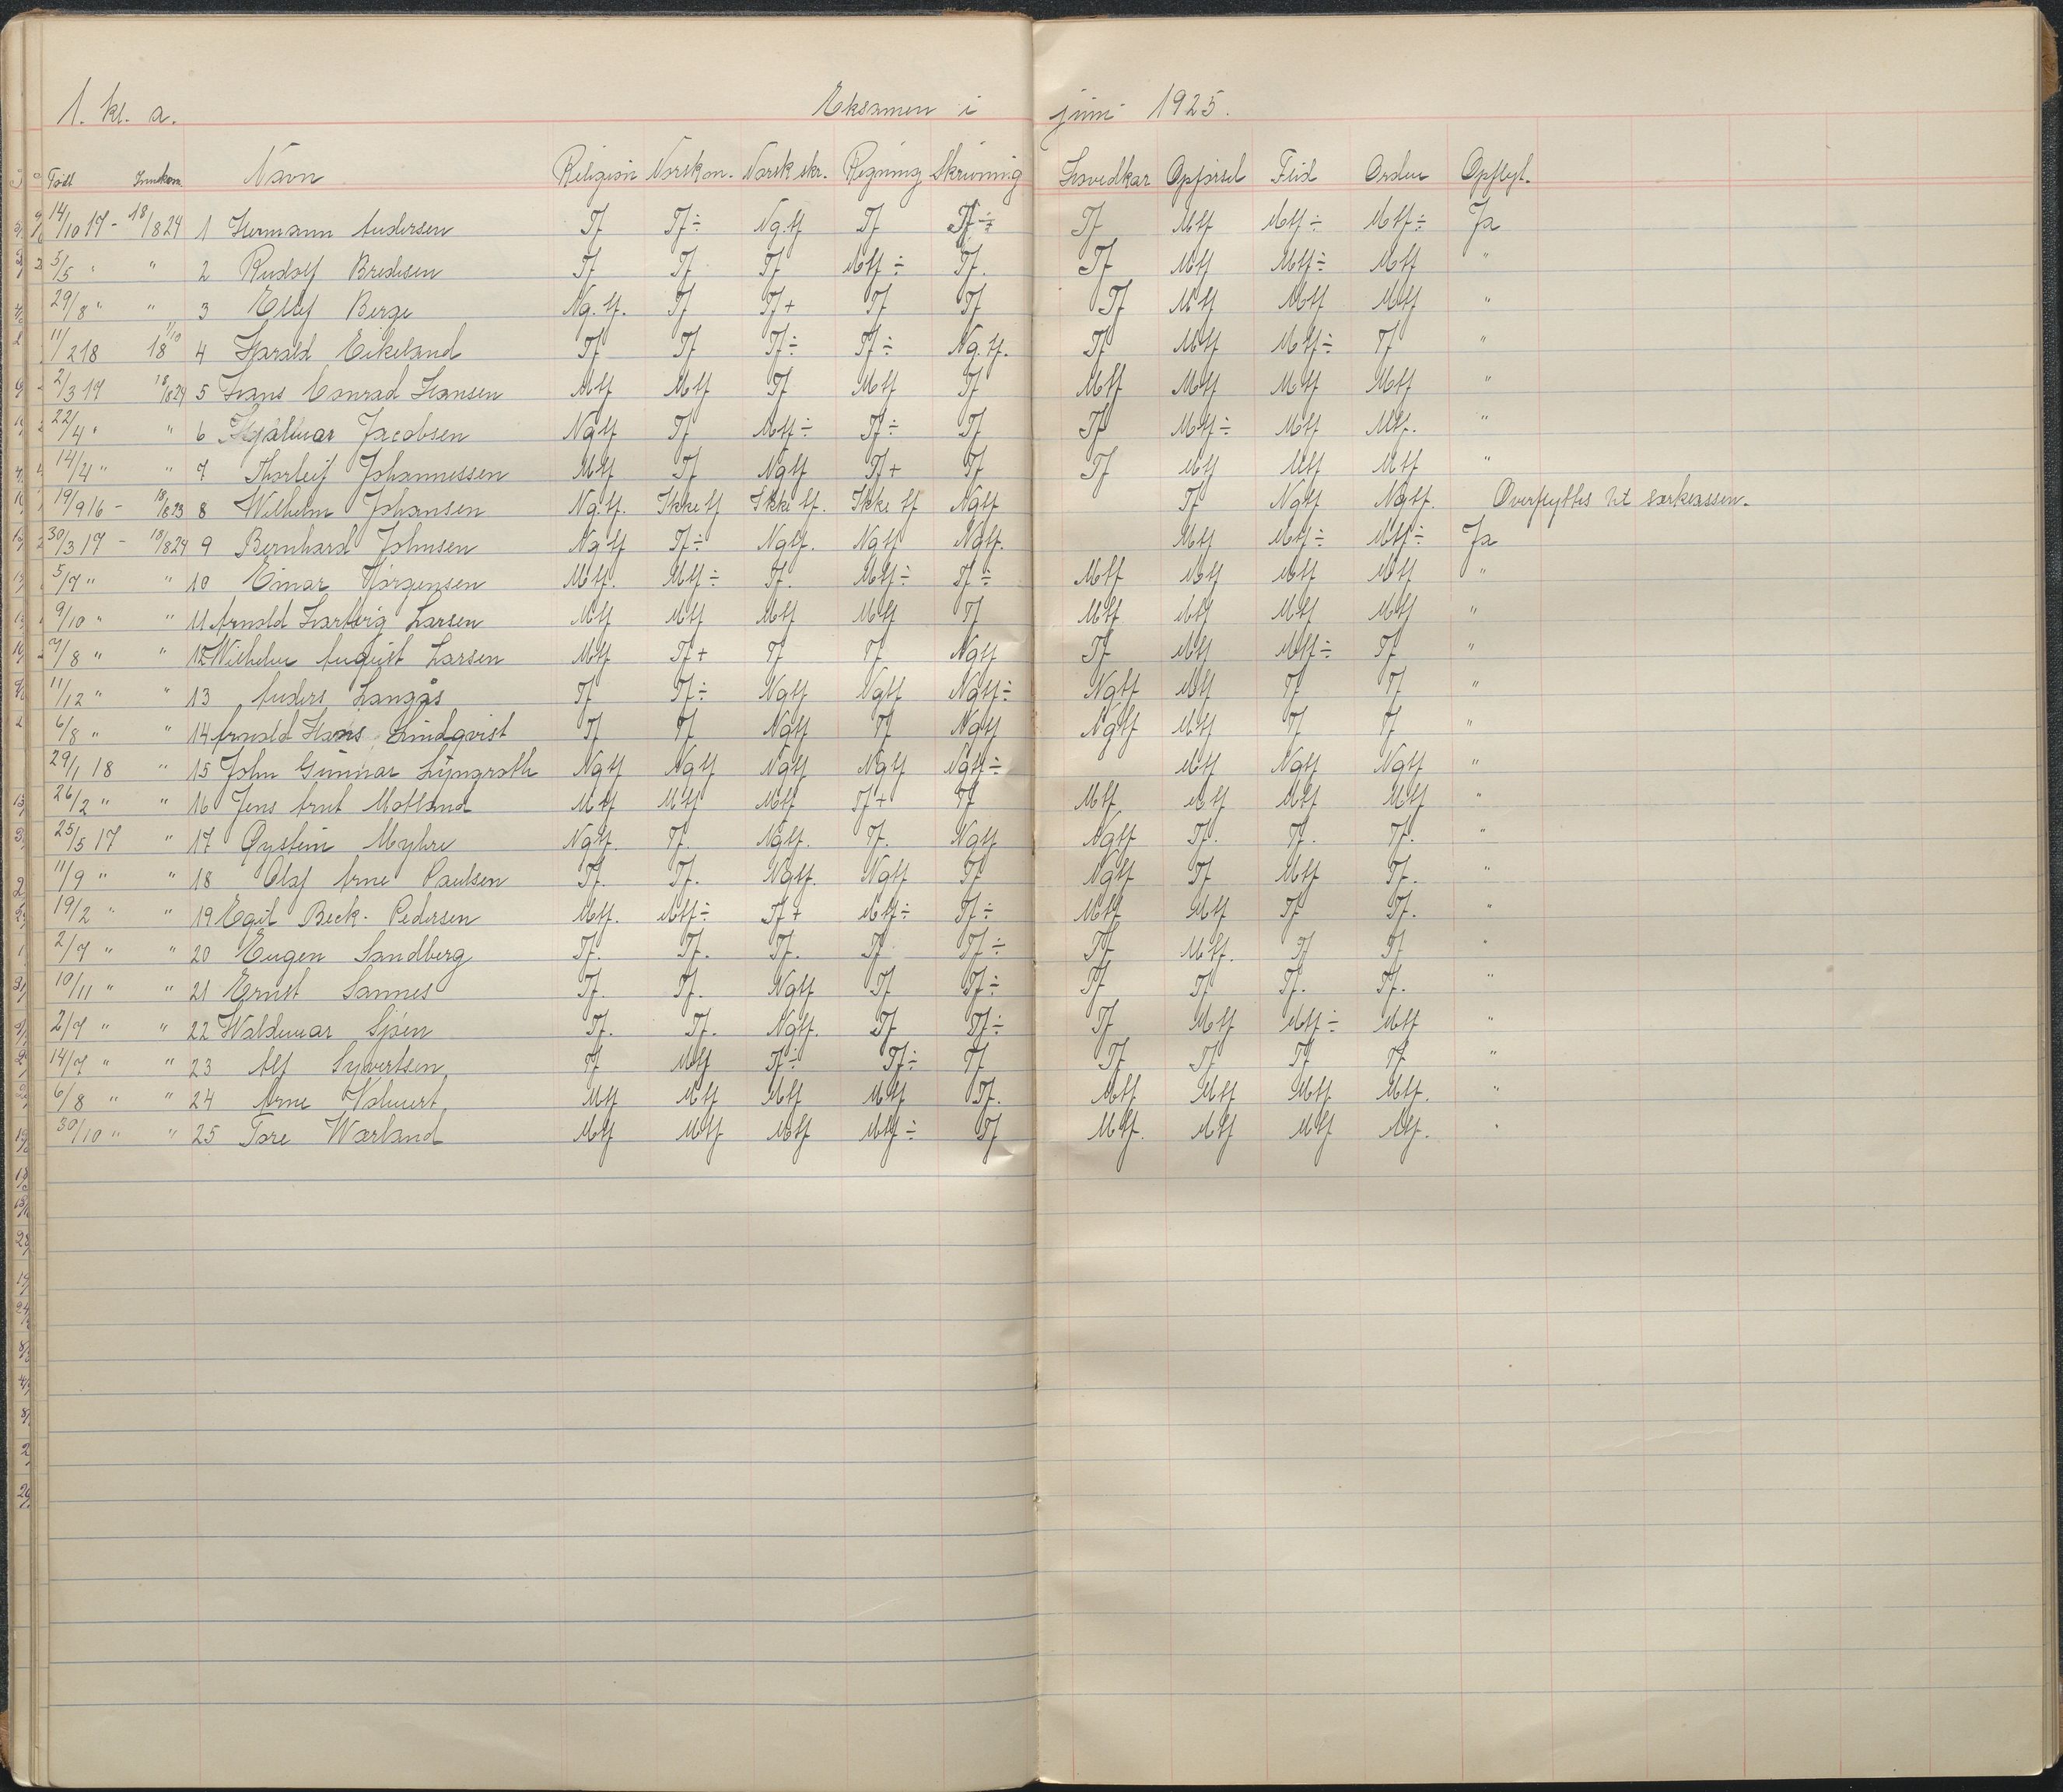 1. kl. a. Eksamen i juni 1925.
Født Innkom Navn Religion Norsk m. Norsk skr. Regning Skrivning Hovedkar Opførsel Flid Orden Opflyt.
14/10 17 - 18/8 24 1 Hermann Andersen Tf Tf÷ Ng.tf Tf Tf÷ Tf Mtf Mtf÷ Mtf÷ Ja
5/5 " " 2 Rudolf Bredesen Tf Tf Tf Mtf÷ Tf. Tf Mtf Mtf÷ Mtf "
29/8 " " 3 Ellef Berge Ng.tf. Tf Tf+ Tf Tf Tf Mtf Mtf Mtf "
11/2 18 18 1/10 4 Harald Eikeland Tf Tf Tf÷ Tf÷ Ng.tf. Tf Mtf Mtf÷ Tf "
2/3 17 18/8 24 5 Hans Conrad Hansen Mtf Mtf Tf Mtf Tf Mtf Mtf Mtf Mtf "
22/4 " " 6 Hjalmar Jacobsen Ngtf Tf Mtf÷ Tf÷ Tf Tf Mtf÷ Mtf Mtf. "
14/4 " " 7 Thorleif Johannessen Mtf Tf Ngtf Tf+ Tf Tf Mtf Mtf Mtf "
19/9 16 - 18/8 23 8 Wilhelm Johansen Ng.tf. Ikke tf Ikke tf. Ikke tf Ngtf Tf Ngtf Ngtf. Overflyttes til særklassen.
30/3 17 - 18/8 24 9 Bernhard Johnsen Ngtf Tf÷ Ngtf. Ngtf Ngtf. Mtf Mtf÷ Mtf÷ Ja
5/7 " " 10 Einar Jörgensen Mtf. Mtf÷ Tf. Mtf÷ Tf÷ Mtf Mtf Mtf Mtf "
9/10 " " 11 Arnold Hartvig Larsen Mtf Mtf Mtf Mtf Tf Mtf Mtf Mtf Mtf "
7/8 " " 12 Wilhelm August Larsen Mtf Tf+ Tf Tf Ngtf Tf Mtf Mtf÷ Tf "
11/12 " " 13 Anders Langås Tf Tf÷ Ngtf Ngtf Ngtf÷ Ngtf Mtf Tf Tf "
6/8 " " 14 Arnold Hans Lindqvist Tf Tf Ngtf Tf Ngtf Ngtf Mtf Tf Tf "
29/1 18 " 15 John Gunnar Lyngroth Ngtf Ngtf Ngtf Ngtf Ngtf÷ Mtf Ngtf Ngtf "
26/2 " " 16 Jens Arnt Motland Mtf Mtf Mtf Tf+ Tf Mtf Mtf Mtf Mtf "
25/5 17 " 17 Øystein Myhre Ngtf. Tf. Ngtf. Tf. Ngtf Ngtf Tf. Tf. Tf. "
11/9 " " 18 Olaf Arne Paulsen Tf. Tf. Ngtf. Ngtf Tf Ngtf Tf Mtf Tf. "
19/2 " " 19 Egil Beck-Pedersen Mtf. Mtf÷ Tf+ Mtf÷ Tf÷ Mtf Mtf Tf Tf. "
2/7 " " 20 Eugen Sandberg Tf. Tf. Tf. Tf Tf÷ Tf Mtf. Tf Tf "
10/11 " " 21 Ernst Sannes Tf. Tf. Ngtf Tf Tf÷ Tf Tf Tf. Tf. "
2/7 " " 22 Waldemar Sjøen Tf. Tf. Ngtf. Tf Tf÷ Tf Mtf Mtf÷ Mtf "
14/7 " " 23 Alf Syvertsen Tf Mtf Tf÷ Tf÷ Tf Tf Tf Tf Tf "
6/8 " " 24 Arne Mtf Mtf Mtf Mtf Tf. Mtf Mtf Mtf Mtf. "
30/10 " " 25 Tore Wærland Mtf Mtf Mtf Mtf÷ Tf Mtf. Mtf Mtf Mtf. "